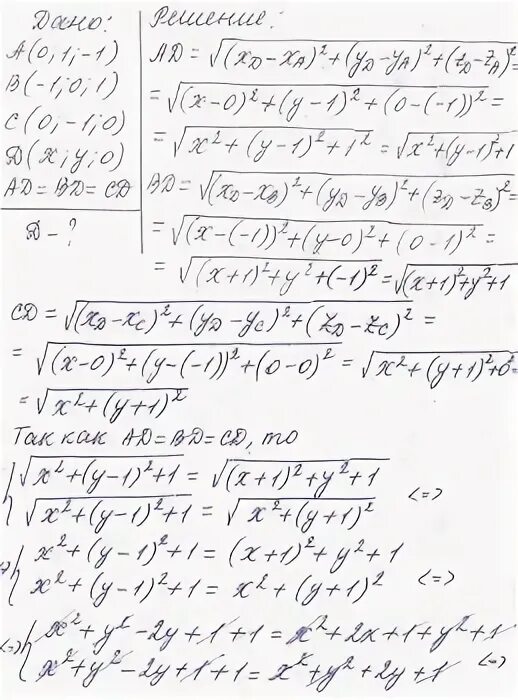 Дано:
A(0,1,-1)
B(-1;0;1)
C(0,-1;0)
Д(x;y;0)
AD=BD=CD
Д-?
Решение:
AD=√((x_D-x_A)²+(y_D-y_A)²+(z_D-z_A)²=
=√((x-0)²+(y-1)²+(0-(-1))²=
=√(x²+(y-1)²+1²=√(x²+(y-1)²+1
BD=√((x_D-x_B)²+(y_D-y_B)²+(z_D-z_B)²=
=√((x-(-1))²+(y-0)²+(0-1)²=
=√((x+1)²+y²+(-1)²=√((x+1)²+y²+1
CD=√((x_D-x_C)²+(y_D-y_C)²+(z_D-z_C)²=
=√((x-0)²+(y-(-1))²+(0-0)²=√(x²+(y+1)²+0²
=√(x²+(y+1)²
Так как AD=BD=CD, то
{√(x²+(y-1)²+1=√((x+1)²+y²+1
√(x²+(y-1)²+1=√(x²+(y+1)² <=>
{x²+(y-1)²+1=(x+1)²+y²+1
x²+(y-1)²+1=x²+(y+1)² <=>
<=>{x²+y²-2y+1+1=x²+2x+1+y²+1
x²+y²-2y+1+1=x²+y²+2y+1 <=>